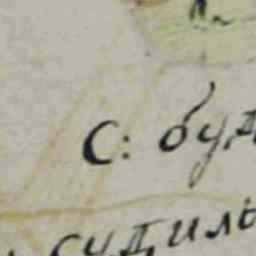 С: буд
судиль